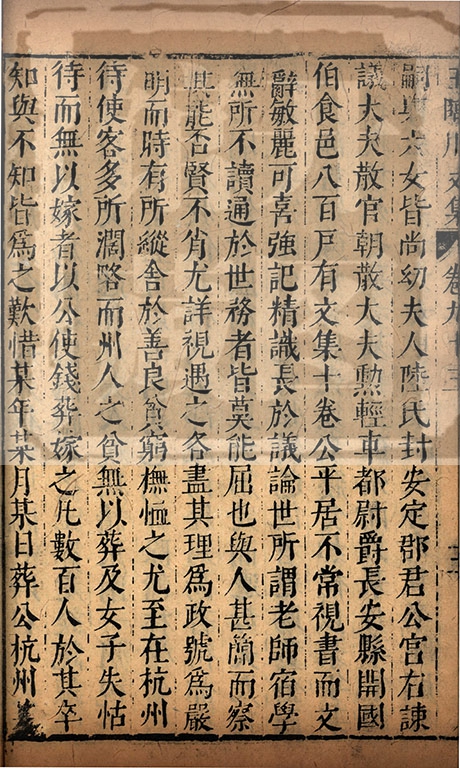 王臨川文集 卷九十三
嗣與六女皆尚幼夫人陸氏封安定郡君公官右諫
議大夫散官朝散大夫勲輕車都尉爵長安縣開國
伯食邑八百戶有文集十卷公平居不常視書而文
辭敏麗可喜強記精識長於議論世所謂老師宿學
無所不讀通於世務者皆莫能屈也與人甚簡而察
其能否賢不肖尤詳視遇之各盡其理爲政號爲嚴
明而時有所縱舍於善良貧窮撫恤之尤至在杭州
待使客多所濶略而州人之貧無以葬及女子失怙
待而無以嫁者以公使錢葬嫁之凡數百人於其卒
知與不知皆爲之歎惜某年某月某日葬公杭州